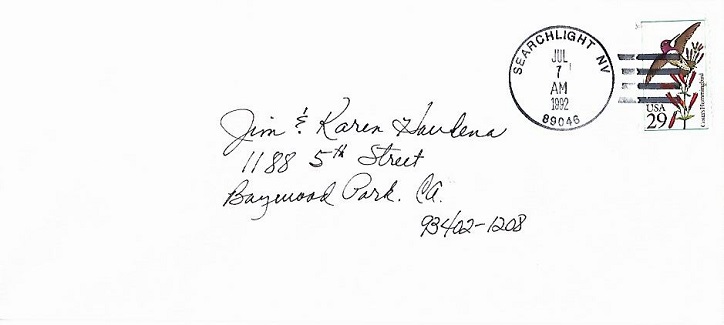 SEARCHLIGHT NV
JUL
7
AM
1992
89046
USA
29
Costa's Hummingbird
Jim & Karen
1188 5th Street
Baywood Park, CA.
93402-1208